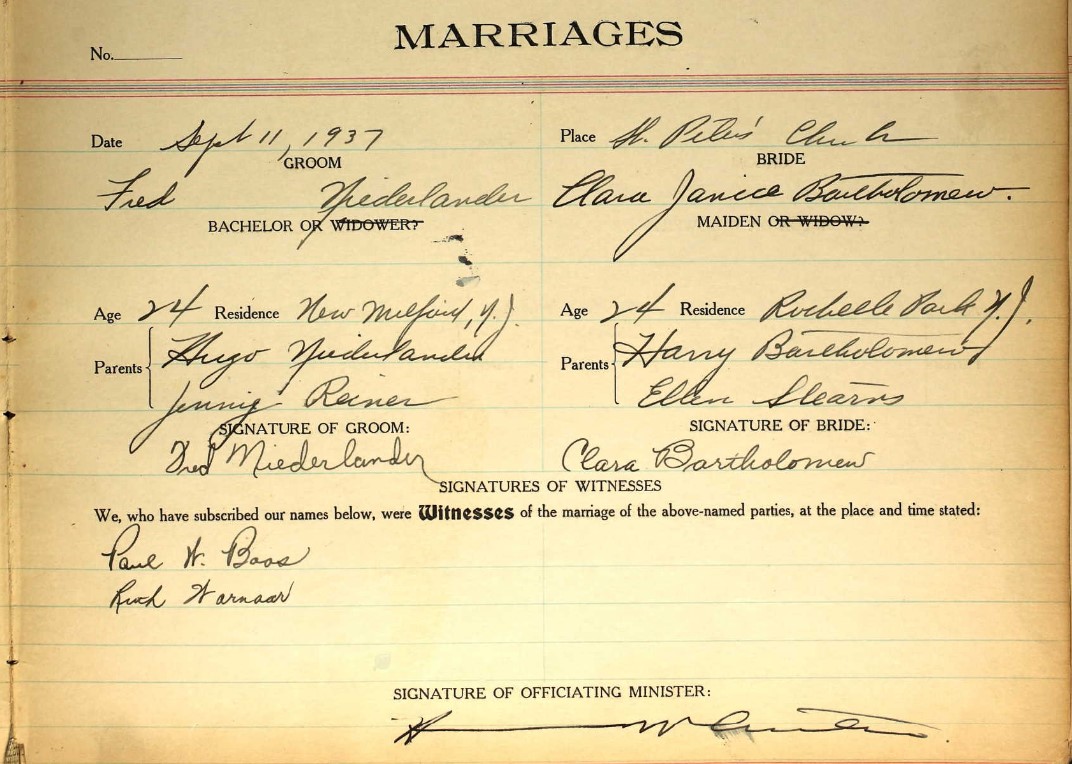 MARRIAGES
No.
Date Sept 11, 1937 Place St. Peter's Church
GROOM BRIDE
Fred Niederlander Clara Janice Bartholomew.
BACHELOR OR WIDOWER? MAIDEN OR WIDOW?
Age 24 Residence New Milford, N.J. Age 24 Residence Rochelle Park N.J.
Parents Hugo Niederlander Parents Harry Bartholomew
Jennie Reiner Ellen Stearns
SIGNATURE OF GROOM: SIGNATURE OF BRIDE:
Fred Niederlander Clara Bartholomew
SIGNATURES OF WITNESSES
We, who have subscribed our names below, were Witnesses of the marriage of the above-named parties, at the place and time stated:
Paul W. Boos
Ruth Warnaar
SIGNATURE OF OFFICIATING MINISTER: